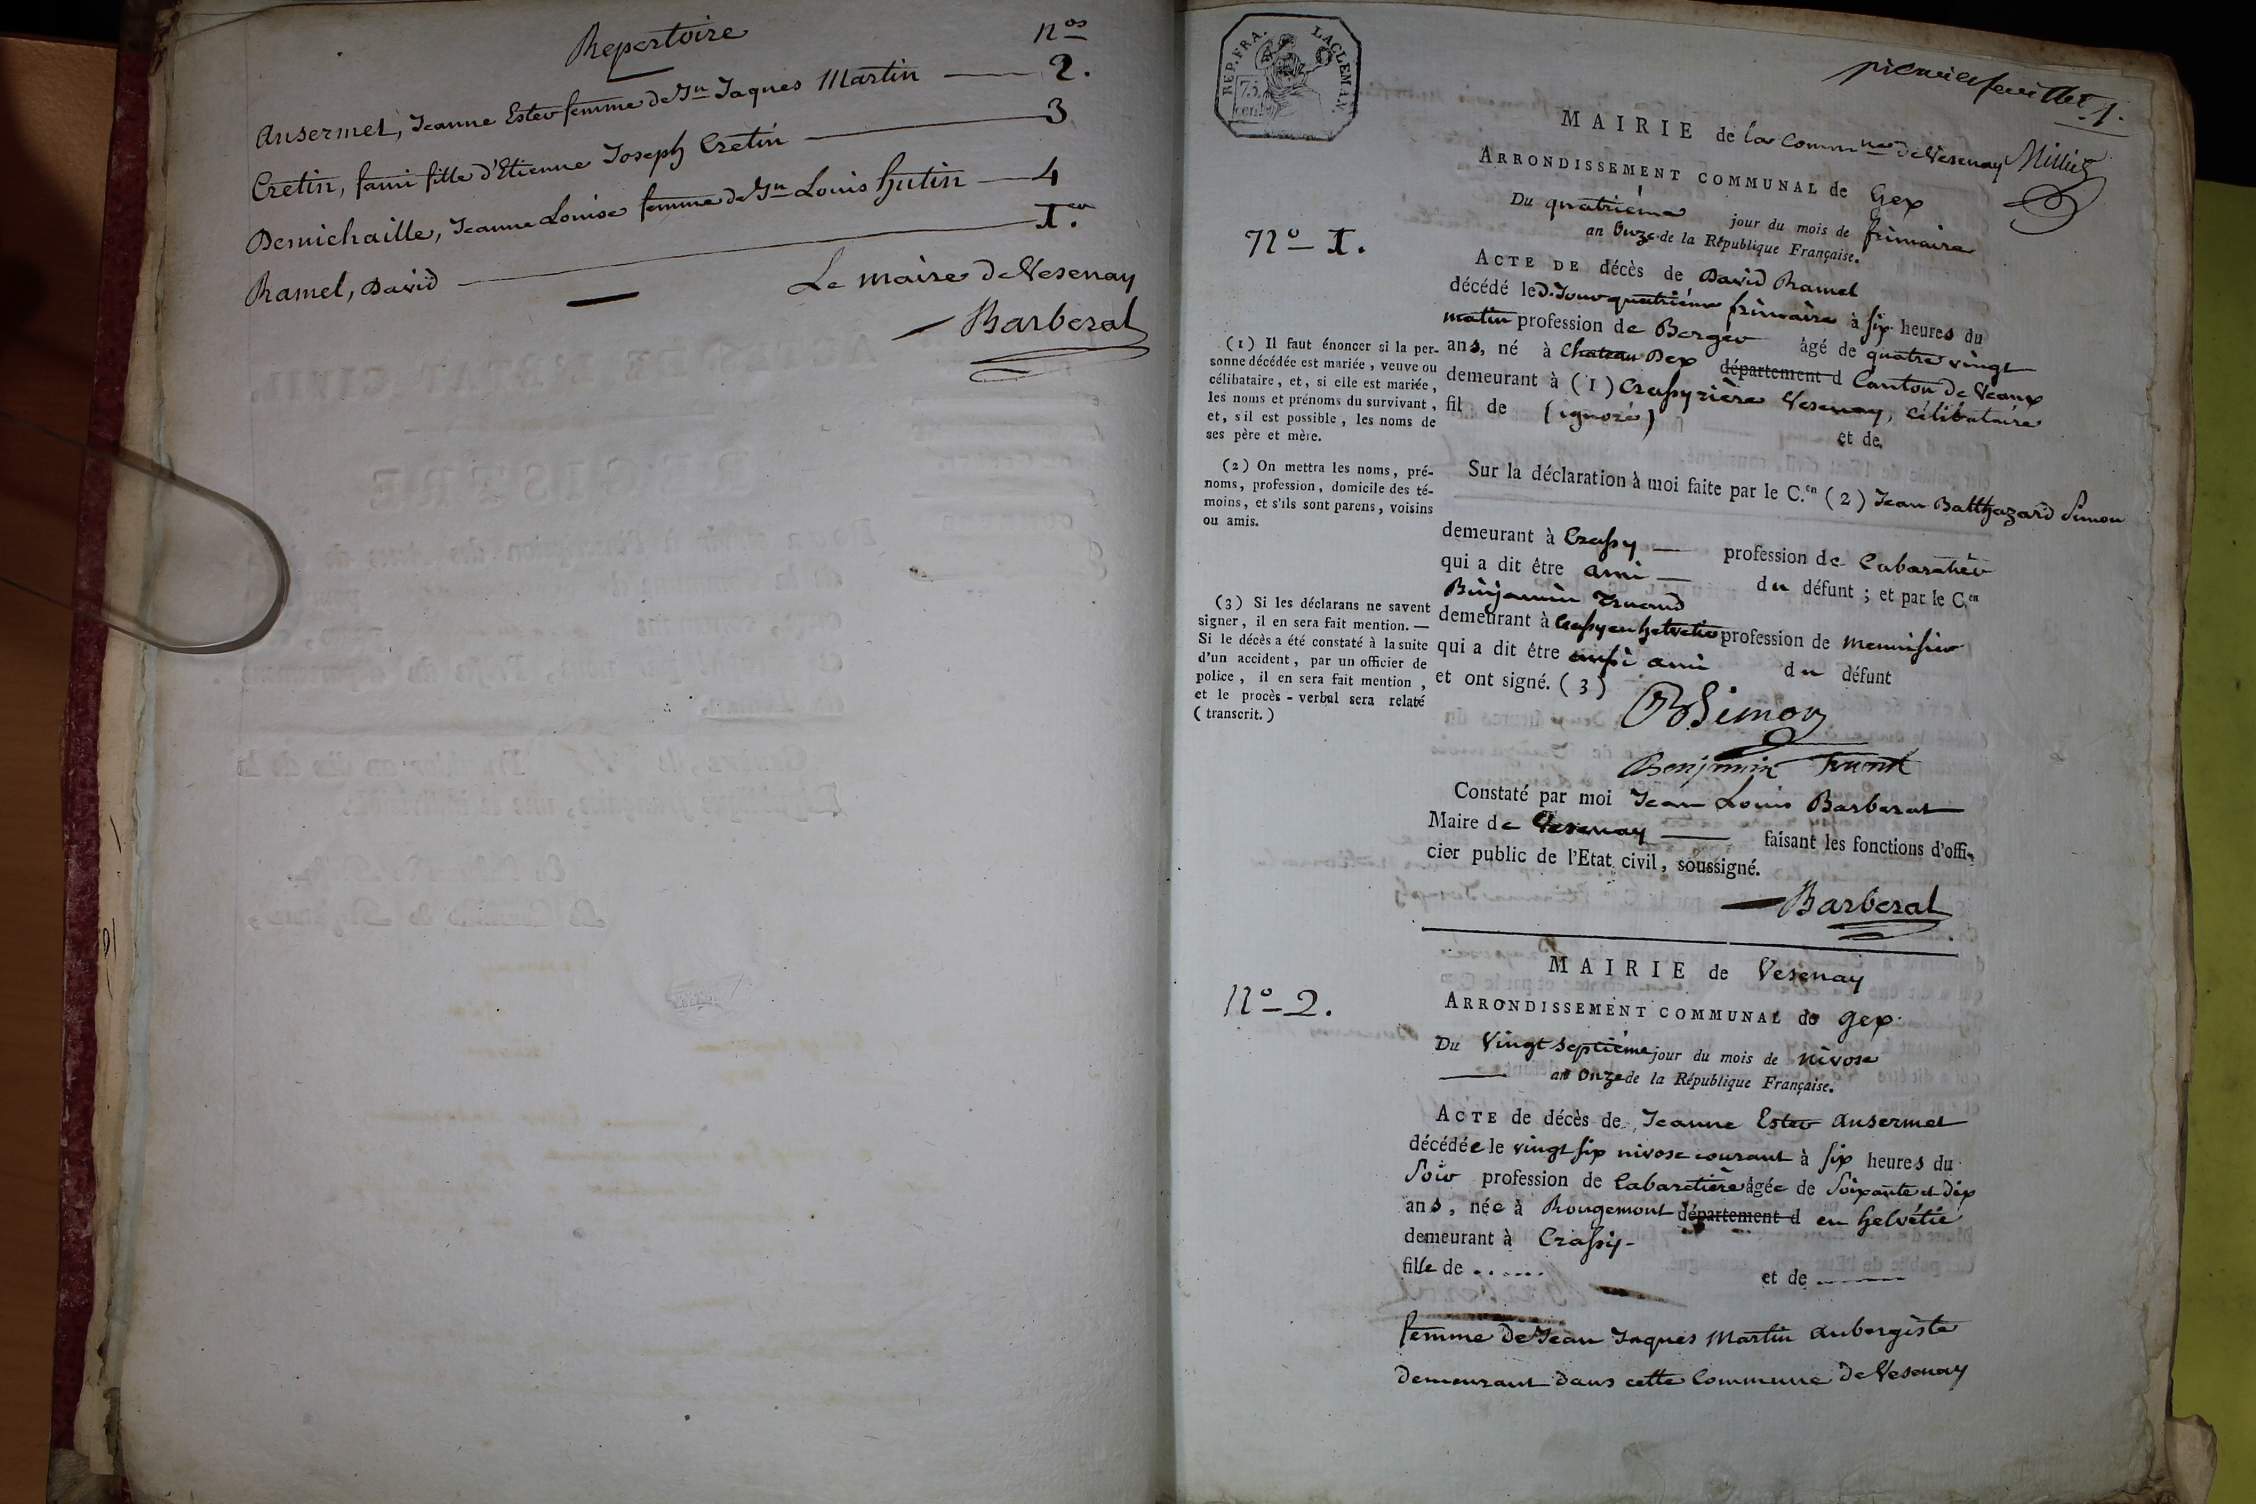 Repertoire nos
Ansermet, Jeanne Ester femme de Jn Jaques Martin — 2.
Cretin, fami fille d'Etienne Joseph Cretin — 3
Demichaille, Jeanne Louise femme de Jn Louis hutin — 4
Ramel, David — I.er
Le maire de Vesenay
Barberat
REP. FRA.
75
cent
premier feuillet 1.
MAIRIE de la Commune de Vesenay
ARRONDISSEMENT COMMUNAL de Gex
Du quatriéme jour du mois de frimaire
an Onze de la République Française.
No I.
ACTE DE décès de David Ramel
décédé le d. Jour quatriéme frimaire à six heures du
matin profession de Berger âgé de quatre vingt
ans, né à Chateau Dex département d Canton de Veaux
demeurant à (1) Crassy rière Vesenay, célibataire
fil de (ignoré) et de
(1) Il faut énoncer si la per-
sonne décédée est mariée, veuve ou
célibataire, et, si elle est mariée,
les noms et prénoms du survivant,
et, s'il est possible, les noms de
ses père et mère.
Sur la déclaration à moi faite par le C.en (2) Jean Balthazard Simon
demeurant à Crassy — profession de Cabaretier
qui a dit être ami — du défunt; et par le C.en
Binjamin Truand
demeurant à Crassy en helvetie profession de Menuisier
qui a dit être aussi ami du défunt
et ont signé. (3)
(2) On mettra les noms, pré-
noms, profession, domicile des té-
moins, et s'ils sont parens, voisins
ou amis.
(3) Si les déclarans ne savent
signer, il en sera fait mention. —
Si le décès a été constaté à la suite
d'un accident, par un officier de
police, il en sera fait mention,
et le procès-verbal sera relaté
(transcrit.)
Simon
Benjamin
Constaté par moi Jean Louis Barberat
Maire de Vesenay — faisant les fonctions d'offi-
cier public de l'Etat civil, soussigné.
Barberat
MAIRIE de Vesenay
No 2.
ARRONDISSEMENT COMMUNAL de Gex
Du Vingt septiéme jour du mois de nivose
— an Onze de la République Française.
ACTE de décès de Jeanne Ester Ansermet
décédée le vingt six nivose courant à six heures du
Soir profession de Cabaretière âgée de Soixante et dix
ans, née à Rougemont département d en helvétie
demeurant à Crassy -
fille de ...... et de ———
femme de Jean Jaques Martin aubergiste
demeurant dans cette Commune de Vesenay